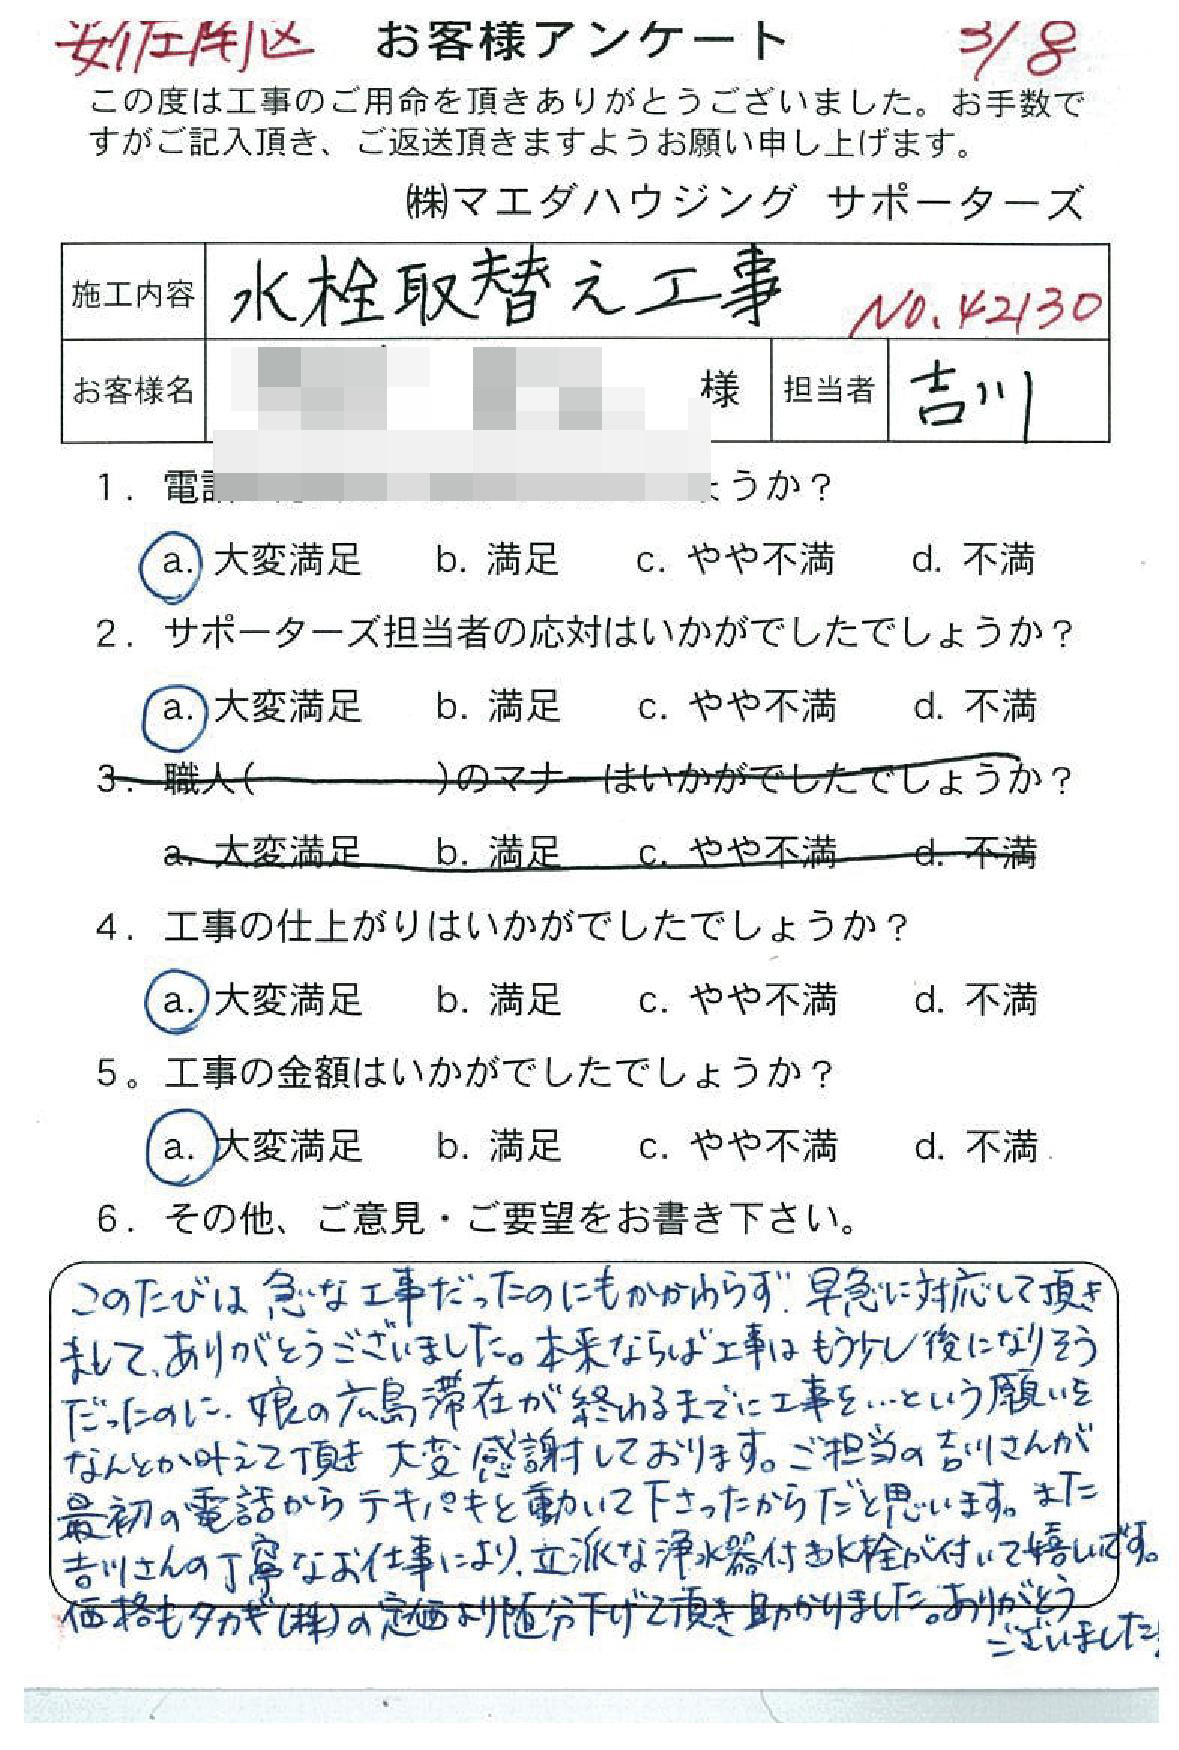 安佐南区 お客様アンケート 3/8
この度は工事のご用命を頂きありがとうございました。お手数で
すがご記入頂き、ご返送頂きますようお願い申し上げます。
㈱マエダハウジング サポーターズ
施工内容 水栓取替え工事 NO.42130
お客様名 様 担当者 吉川
1. 電話 ょうか?
a. 大変満足 b. 満足 c. やや不満 d. 不満
2. サポーターズ担当者の応対はいかがでしたでしょうか?
a. 大変満足 b. 満足 c. やや不満 d. 不満
3. 職人( )のマナーはいかがでしたでしょうか?
a. 大変満足 b. 満足 c. やや不満 d. 不満
4. 工事の仕上がりはいかがでしたでしょうか?
a. 大変満足 b. 満足 c. やや不満 d. 不満
5。工事の金額はいかがでしたでしょうか?
a. 大変満足 b. 満足 c. やや不満 d. 不満
6. その他、ご意見・ご要望をお書き下さい。
このたびは急な工事だったのにもかかわらず、早急に対応して頂き
まして、ありがとうございました。本来ならば工事はもう少し後になりそう
だったのに、娘の広島滞在が終わるまでに工事を…という願いを
なんとか叶えて頂き大変感謝しております。ご担当の吉川さんが
最初の電話からテキパキと動いて下さったからだと思います。また
吉川さんの丁寧なお仕事により、立派な浄水器付き水栓が付いて嬉しいです。
価格もタカギ(株)の定価より随分下げて頂き助かりました。ありがとう
ございました!